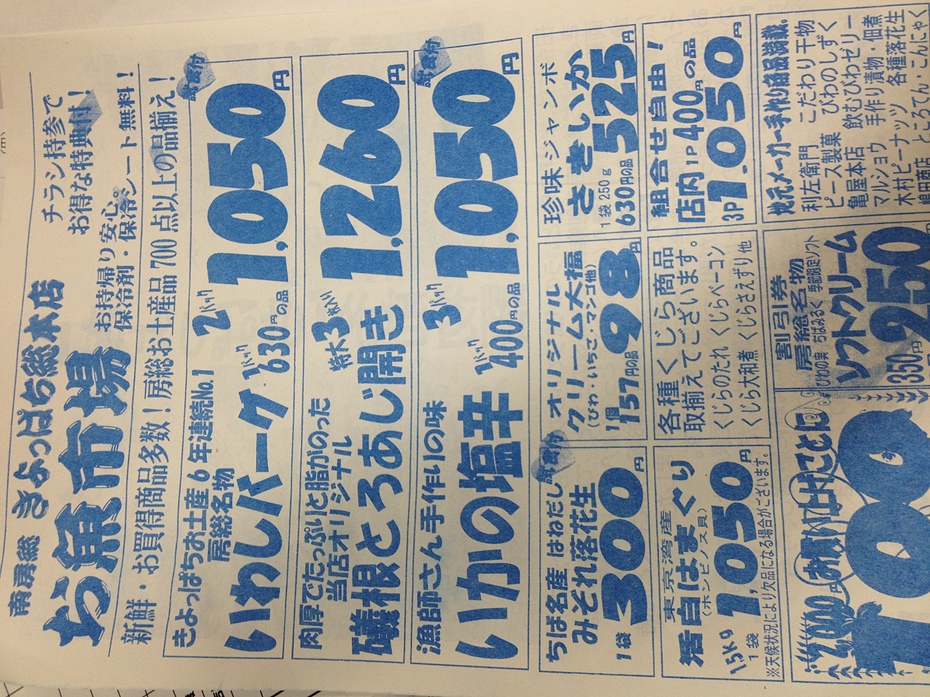 チラシ持参で
お得な特典付!
南房総 きよっぱち総本店
お魚市場
お持帰り安心。
保冷剤・保冷シート無料!
新鮮・お買得商品多数!房総お土産品700点以上の品揃え!
きよっぱちお土産6年連続No.1
房総名物
いわしバーグ
1パック630円の品
2パック
試食付
1,050円
肉厚でたっぷりと脂がのった
当店オリジナル
磯根とろあじ開き
特大3枚入り
1,260円
漁師さん手作りの味
いかの塩辛
1パック400円の品
3パック
試食付
1,050円
ちば名産 はねだし
みそれ落花生
試食付
1袋
300円
オリジナル
クリーム大福
(びわ・いちご・マンゴ他)
1個157円の品
98円
珍味ジャンボ
さきいか
1袋250g
630円の品
525円
東京湾産
活白はまぐり
(ホンビノス貝)
1.5kg
1袋
1,050円
※天候状況により欠品になる場合がございます。
各種くじら商品
取揃えてございます。
くじらのたれ くじらベーコン
くじら大和煮 くじらさえずり他
組合せ自由!
店内1P400円の品
3P1,050円
2,000円お買い上げごとに
100
割引券
房総名物
ソフトクリーム
350円
250
地元メーカー手作り商品満載。
利左衛門 こだわり干物
ピース製菓 びわのしずく
亀屋本店 飲むびわゼリー
マルショウ 手作り漬物・佃煮
木村ピーナッツ 各種落花生
ところてん・こんにゃく